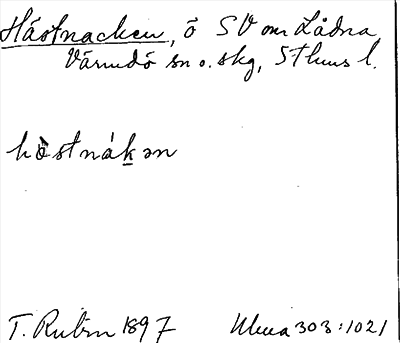 Hästnacken, ö SV om Lådna,
Värmdö sn o. skg, Sthms l.
hòstnákən
T. Rubin 1897 Uma 303:1021